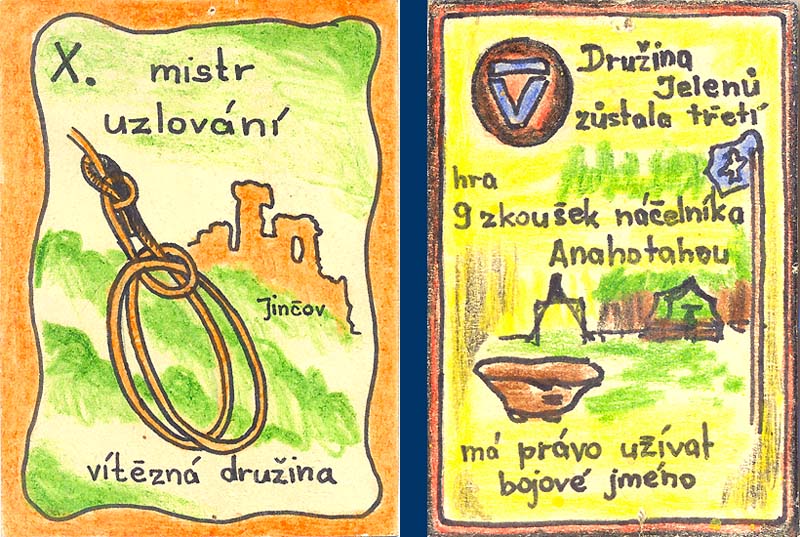 X. mistr
uzlování
Jinčov
vítězná družina
V
Družina
Jelenů
zůstala třetí
hra
9 zkoušek náčelníka
Anahotahou
má právo užívat
bojové jméno